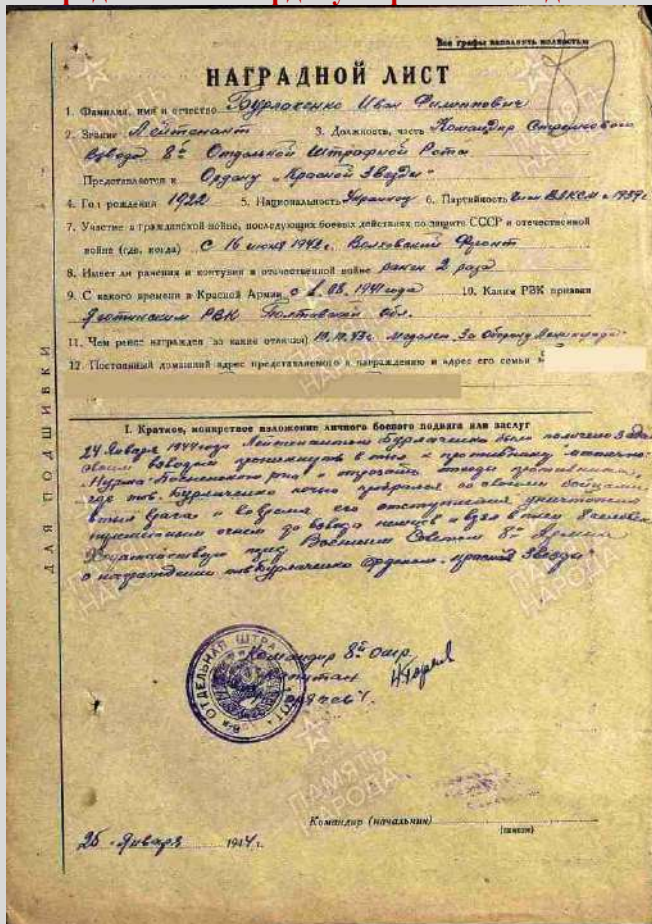 Все графы заполнять полностью
НАГРАДНОЙ ЛИСТ
1. Фамилия, имя и отчество Бурлаченко Иван Филиппович
2. Звание Лейтенант 3. Должность, часть Командир Стрелкового
взвода 8й Отдельной Штрафной Роты
Представляется к Ордену "Красной Звезды"
4. Год рождения 1922 5. Национальность Украинец 6. Партийность Член ВЛКСМ с 1939 г.
7. Участие в гражданской войне, последующих боевых действиях по защите СССР и отечественной
войне (где, когда) С 16 июня 1942 г. Волховский Фронт
8. Имеет ли ранения и контузии в отечественной войне ранен 2 раза
9. С какого времени в Красной Армии с 08. 1941 года 10. Каким РВК призван
РВК Полтавской Обл.
11. Чем ранее награжден (за какие отличия) 43 г. Медалью "За Оборону Ленинграда"
12. Постоянный домашний адрес представляемого к награждению и адрес его семьи
ДЛЯ ПОДШИВКИ
I. Краткое, конкретное изложение личного боевого подвига или заслуг
24 Января 1944 года Лейтенантом Бурлаченко была получено
своим взводом проникнуть в тыл к противнику
и отрезать отходы противника,
где тов. Бурлаченко ночью пробрался со своими бойцами
в тыл врага и во время его отступления уничтожено
огнем до взвода немцев и взял в плен 8 человек
Ходатайствую пред Военным Советом 8й Армии
о награждении тов Бурлаченко Орденом "Красной Звезды"
Командир 8й ошр
Капитан
ОТДЕЛЬНАЯ ШТРАФНАЯ РОТА
Командир (начальник)
(подпись)
25 Января 1944 г.
ПАМЯТЬ
НАРОДА